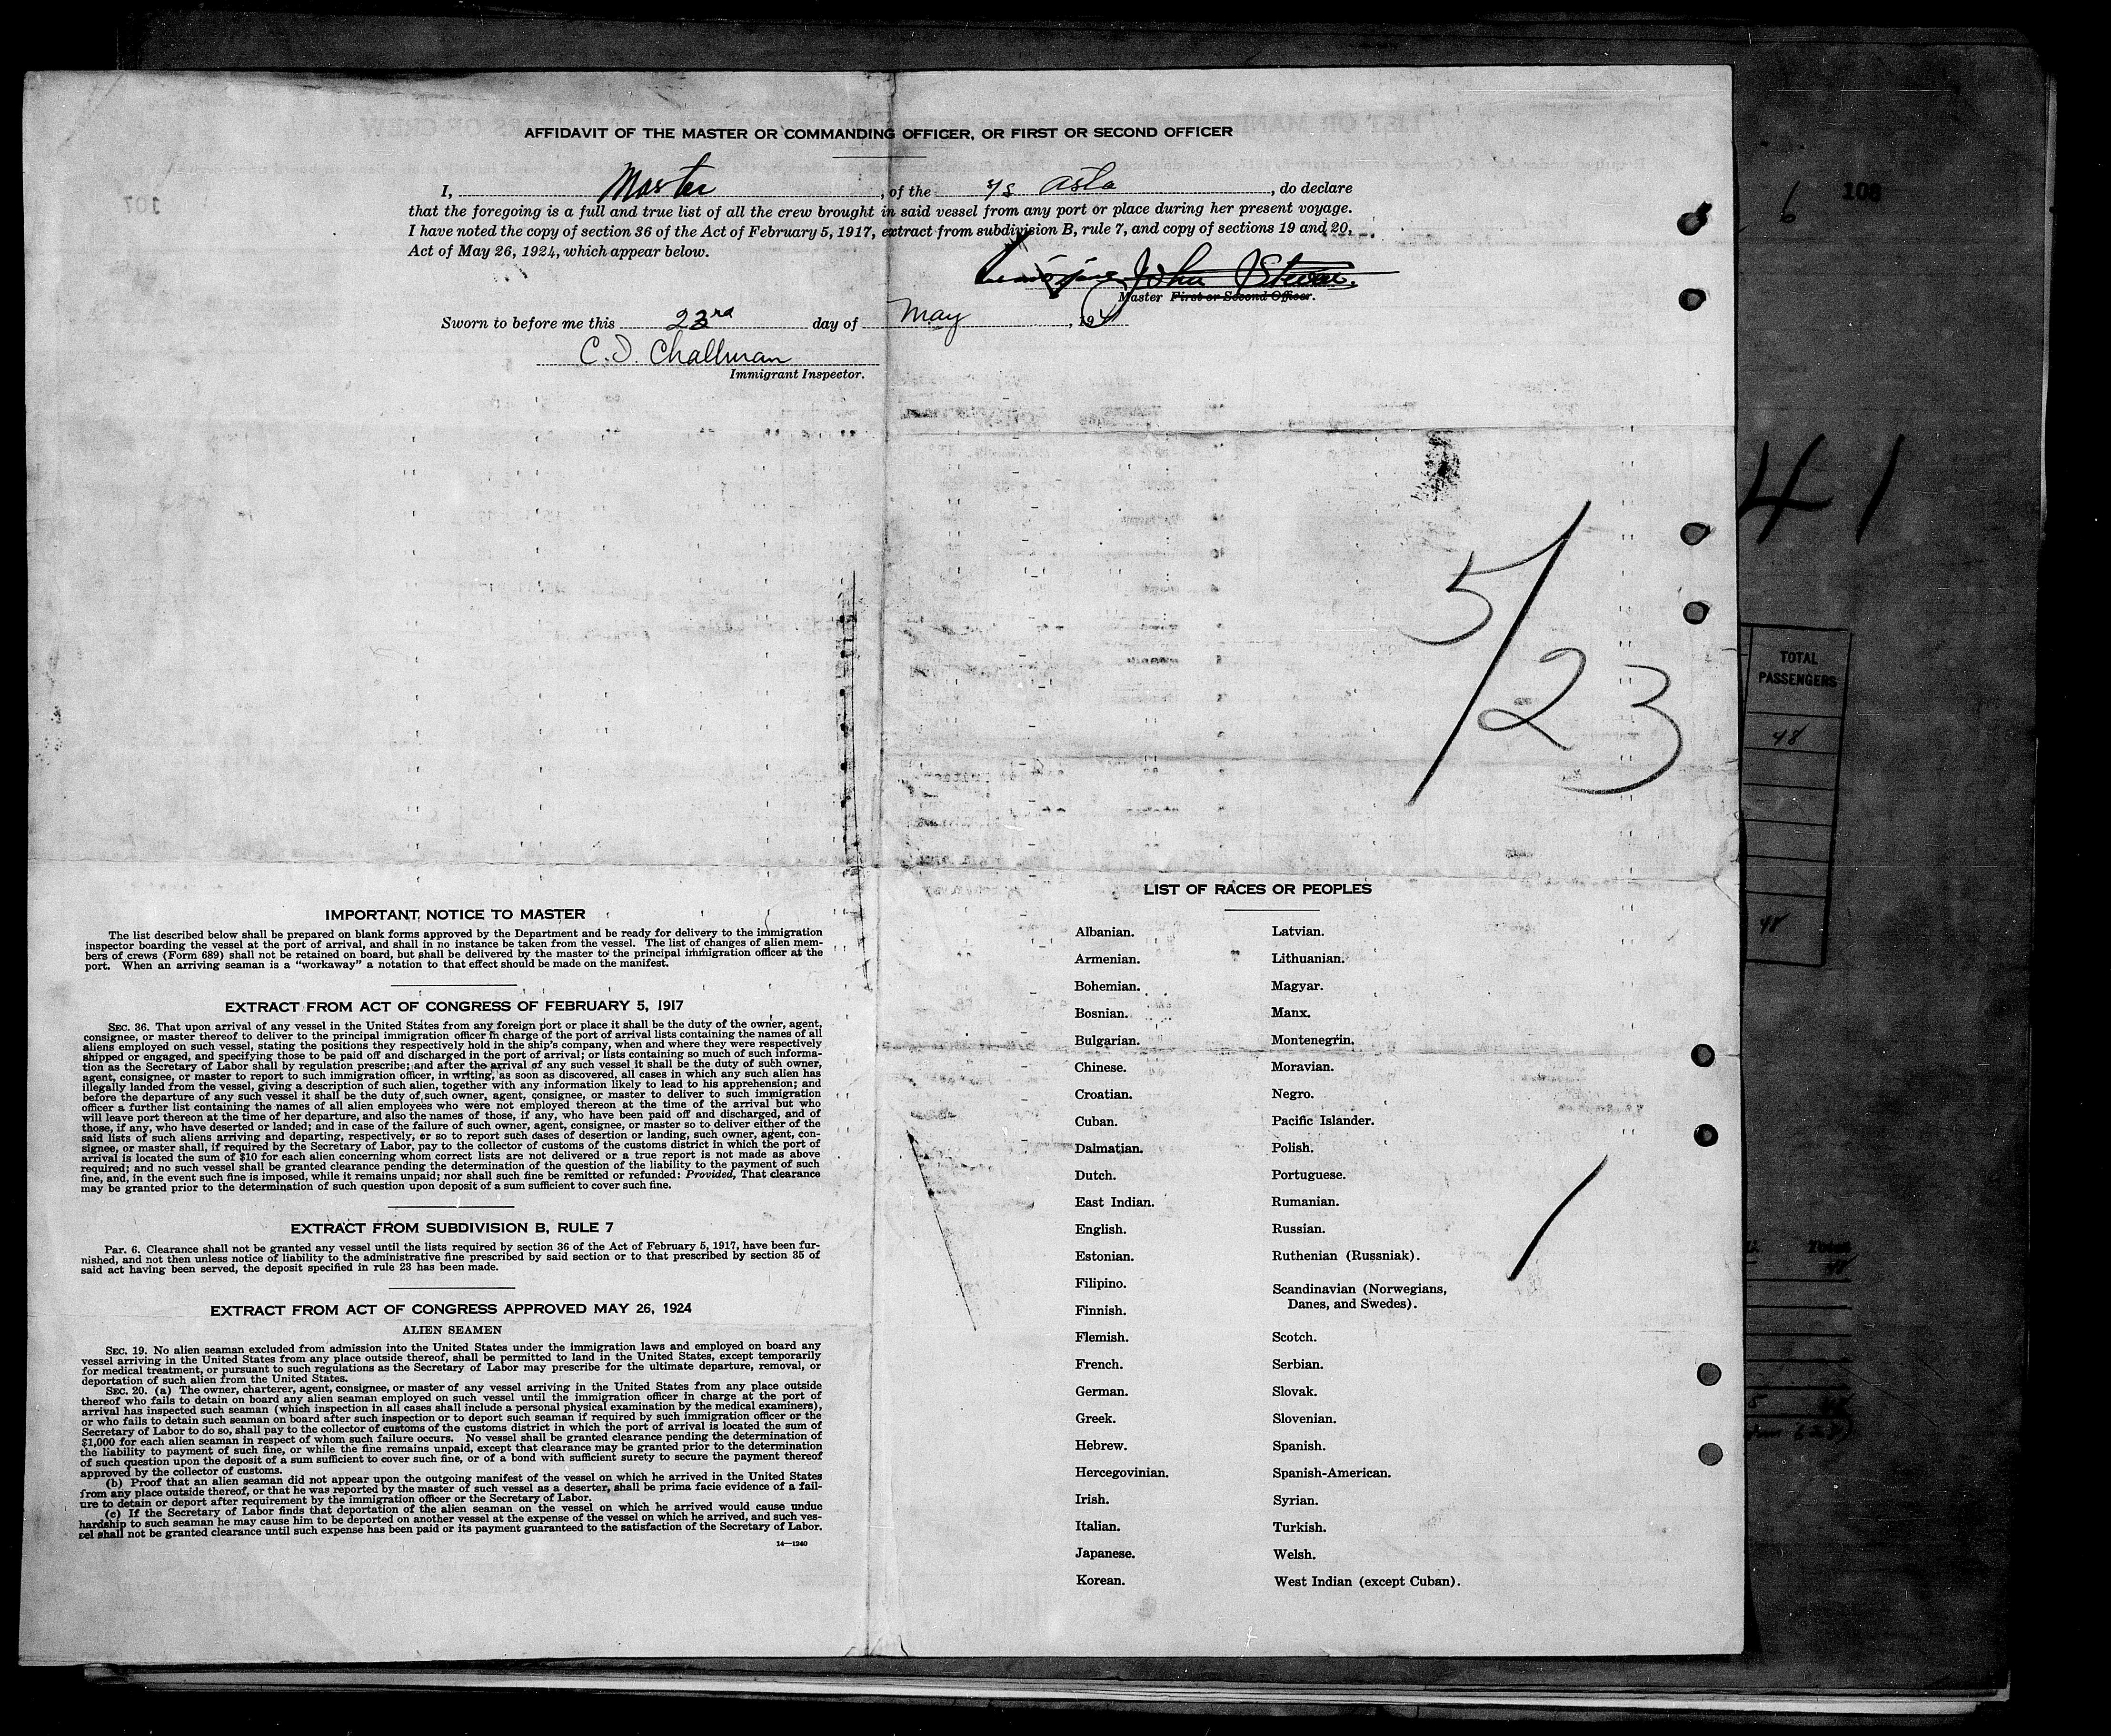 AFFIDAVIT OF THE MASTER OR COMMANDING OFFICER, OR FIRST OR SECOND OFFICER
I, Master, of the S/S Asta, do declare
that the foregoing is a full and true list of all the crew brought in said vessel from any port or place during her present voyage.
I have noted the copy of section 36 of the Act of February 5, 1917, extract from subdivision B, rule 7, and copy of sections 19 and 20,
Act of May 26, 1924, which appear below.
John
Master First or Second Officer.
Sworn to before me this 23rd day of May, 194
C. D. Challman
Immigrant Inspector.
108
107
6
41
5/23
TOTAL
PASSENGERS
48
48
IMPORTANT NOTICE TO MASTER
The list described below shall be prepared on blank forms approved by the Department and be ready for delivery to the immigration
inspector boarding the vessel at the port of arrival, and shall in no instance be taken from the vessel. The list of changes of alien mem-
bers of crews (Form 689) shall not be retained on board, but shall be delivered by the master to the principal immigration officer at the
port. When an arriving seaman is a "workaway" a notation to that effect should be made on the manifest.
EXTRACT FROM ACT OF CONGRESS OF FEBRUARY 5, 1917
SEC. 36. That upon arrival of any vessel in the United States from any foreign port or place it shall be the duty of the owner, agent,
consignee, or master thereof to deliver to the principal immigration officer in charge of the port of arrival lists containing the names of all
aliens employed on such vessel, stating the positions they respectively hold in the ship's company, when and where they were respectively
shipped or engaged, and specifying those to be paid off and discharged in the port of arrival; or lists containing so much of such informa-
tion as the Secretary of Labor shall by regulation prescribe; and after the arrival of any such vessel it shall be the duty of such owner,
agent, consignee, or master to report to such immigration officer, in writing, as soon as discovered, all cases in which any such alien has
illegally landed from the vessel, giving a description of such alien, together with any information likely to lead to his apprehension; and
before the departure of any such vessel it shall be the duty of such owner, agent, consignee, or master to deliver to such immigration
officer a further list containing the names of all alien employees who were not employed thereon at the time of the arrival but who
will leave port thereon at the time of her departure, and also the names of those, if any, who have been paid off and discharged, and of
those, if any, who have deserted or landed; and in case of the failure of such owner, agent, consignee, or master so to deliver either of the
said lists of such aliens arriving and departing, respectively, or so to report such cases of desertion or landing, such owner, agent, con-
signee, or master shall, if required by the Secretary of Labor, pay to the collector of customs of the customs district in which the port of
arrival is located the sum of $10 for each alien concerning whom correct lists are not delivered or a true report is not made as above
required; and no such vessel shall be granted clearance pending the determination of the question of the liability to the payment of such
fine, and, in the event such fine is imposed, while it remains unpaid; nor shall such fine be remitted or refunded: Provided, That clearance
may be granted prior to the determination of such question upon deposit of a sum sufficient to cover such fine.
EXTRACT FROM SUBDIVISION B, RULE 7
Par. 6. Clearance shall not be granted any vessel until the lists required by section 36 of the Act of February 5, 1917, have been fur-
nished, and not then unless notice of liability to the administrative fine prescribed by said section or to that prescribed by section 35 of
said act having been served, the deposit specified in rule 23 has been made.
EXTRACT FROM ACT OF CONGRESS APPROVED MAY 26, 1924
ALIEN SEAMEN
SEC. 19. No alien seaman excluded from admission into the United States under the immigration laws and employed on board any
vessel arriving in the United States from any place outside thereof, shall be permitted to land in the United States, except temporarily
for medical treatment, or pursuant to such regulations as the Secretary of Labor may prescribe for the ultimate departure, removal, or
deportation of such alien from the United States.
SEC. 20. (a) The owner, charterer, agent, consignee, or master of any vessel arriving in the United States from any place outside
thereof who fails to detain on board any alien seaman employed on such vessel until the immigration officer in charge at the port of
arrival has inspected such seaman (which inspection in all cases shall include a personal physical examination by the medical examiners),
or who fails to detain such seaman on board after such inspection or to deport such seaman if required by such immigration officer or the
Secretary of Labor to do so, shall pay to the collector of customs of the customs district in which the port of arrival is located the sum of
$1,000 for each alien seaman in respect of whom such failure occurs. No vessel shall be granted clearance pending the determination of
the liability to payment of such fine, or while the fine remains unpaid, except that clearance may be granted prior to the determination
of such question upon the deposit of a sum sufficient to cover such fine, or of a bond with sufficient surety to secure the payment thereof
approved by the collector of customs.
(b) Proof that an alien seaman did not appear upon the outgoing manifest of the vessel on which he arrived in the United States
from any place outside thereof, or that he was reported by the master of such vessel as a deserter, shall be prima facie evidence of a fail-
ure to detain or deport after requirement by the immigration officer or the Secretary of Labor.
(c) If the Secretary of Labor finds that deportation of the alien seaman on the vessel on which he arrived would cause undue
hardship to such seaman he may cause him to be deported on another vessel at the expense of the vessel on which he arrived, and such ves-
sel shall not be granted clearance until such expense has been paid or its payment guaranteed to the satisfaction of the Secretary of Labor.
14—1240
LIST OF RACES OR PEOPLES
Albanian. Latvian.
Armenian. Lithuanian.
Bohemian. Magyar.
Bosnian. Manx.
Bulgarian. Montenegrin.
Chinese. Moravian.
Croatian. Negro.
Cuban. Pacific Islander.
Dalmatian. Polish.
Dutch. Portuguese.
East Indian. Rumanian.
English. Russian.
Estonian. Ruthenian (Russniak).
Filipino. Scandinavian (Norwegians,
Finnish. Danes, and Swedes).
Flemish. Scotch.
French. Serbian.
German. Slovak.
Greek. Slovenian.
Hebrew. Spanish.
Hercegovinian. Spanish-American.
Irish. Syrian.
Italian. Turkish.
Japanese. Welsh.
Korean. West Indian (except Cuban).
Total